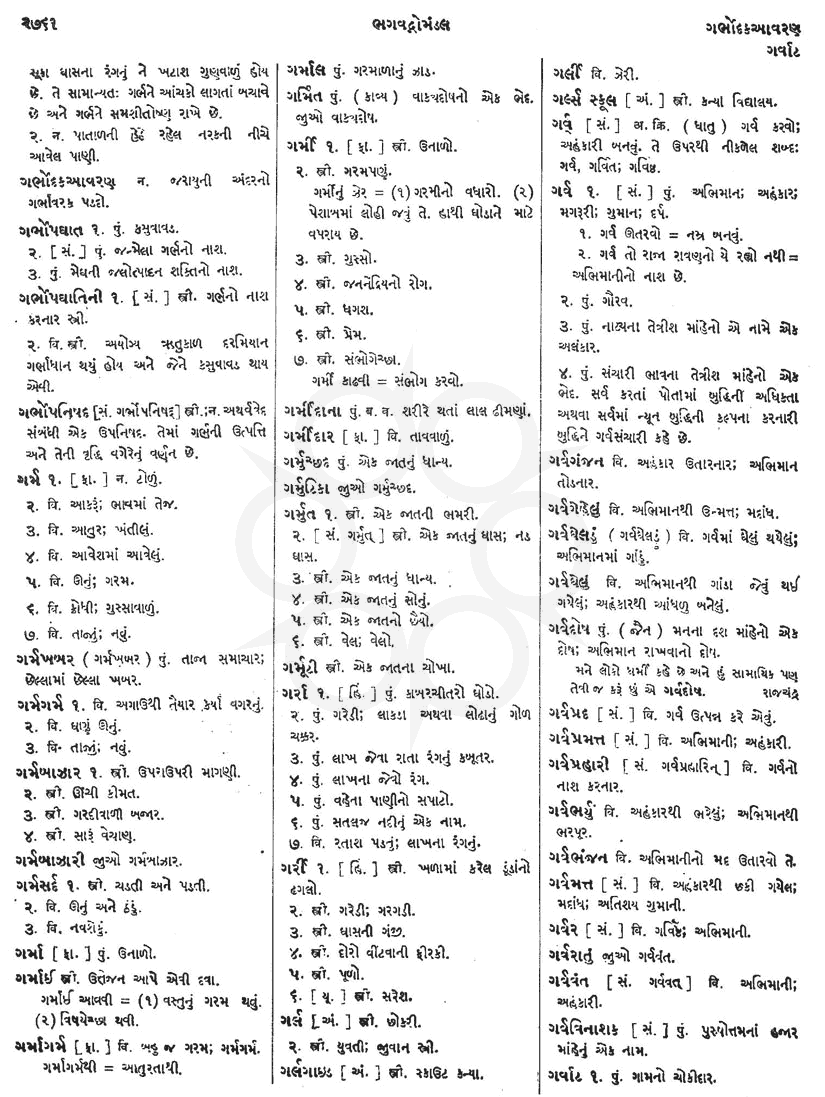 ૨૭૬૨
ભગવદ્ગોમંડલ
ગર્ભોદકઆવરણ
ગર્વાટ
સૂકા ઘાસના રંગનું ને ખટાશ ગુણવાળું હોય
છે. તે સામાન્યતઃ ગર્ભને આંચકો લાગતાં બચાવે
છે અને ગર્ભને સમશીતોષ્ણ રાખે છે.
૨. ન. પાતાળની હેઠે રહેલ નરકની નીચે
આવેલ પાણી.
ગર્ભોદકઆવરણ ન. જરાયુની અંદરનો
ગર્ભાવરક પડદો.
ગર્ભોપઘાત ૧. પું. કસુવાવડ.
૨. [ સં. ] પું. જન્મેલા ગર્ભનો નાશ.
૩. પું. મેઘની જલોત્પાદન શક્તિનો નાશ.
ગર્ભોપઘાતિની ૧. [ સં. ] સ્ત્રી. ગર્ભનો નાશ
કરનાર સ્ત્રી.
૨. વિ. સ્ત્રી. અયોગ્ય ઋતુકાળ દરમિયાન
ગર્ભાધાન થયું હોય અને જેને કસુવાવડ થાય
એવી.
ગર્ભોપનિષદ [ સં. ગર્ભોપનિષદ્ ] સ્ત્રી.;ન. અથર્વવેદ
સંબંધી એક ઉપનિષદ. તેમાં ગર્ભની ઉત્પત્તિ
અને તેની વૃદ્ધિ વગેરેનું વર્ણન છે.
ગર્મ ૧. [ ફા. ] ન. ટોળું.
૨. વિ. આકરું; ભાવમાં તેજ.
૩. વિ. આતુર; ખંતીલું.
૪. વિ. આવેશમાં આવેલું.
૫. વિ. ઊનું; ગરમ.
૬. વિ. ક્રોધી; ગુસ્સાવાળું.
૭. વિ. તાજું; નવું.
ગર્મખબર ( ગર્મખ઼બર ) પું. તાજા સમાચાર;
છેલ્લામાં છેલ્લા ખબર.
ગર્મગર્મ ૧. વિ. અગાઉથી તૈયાર કર્યા વગરનું.
૨. વિ. ઘણું ઊનું.
૩. વિ. તાજું; નવું.
ગર્મબાઝાર ૧. સ્ત્રી. ઉપરાઉપરી માગણી.
૨. સ્ત્રી. ઊંચી કીંમત.
૩. સ્ત્રી. ગરદીવાળી બજાર.
૪. સ્ત્રી. સારું વેચાણ.
ગર્મબાઝારી જુઓ ગર્મબાઝાર.
ગર્મસર્દ ૧. સ્ત્રી. ચડતી અને પડતી.
૨. વિ. ઊનું અને ઠંડું.
૩. વિ. નવશેકું.
ગર્મા [ ફા. ] પું. ઉનાળો.
ગર્માઈ સ્ત્રી. ઉત્તેજન આપે એવી દવા.
ગર્માઈ આવવી = (૧) વસ્તુનું ગરમ થવું.
(૨) વિષયેચ્છા થવી.
ગર્માગર્મ [ ફા. ] વિ. બહુ જ ગરમ; ગર્મગર્મ.
ગર્માગર્મથી = આતુરતાથી.
ગર્માલ પું. ગરમાળાનું ઝાડ.
ગર્મિત પું. ( કાવ્ય ) વાક્યદોષનો એક ભેદ.
જુઓ વાક્યદોષ.
ગર્મી ૧. [ ફા. ] સ્ત્રી. ઉનાળો.
૨. સ્ત્રી. ગરમપણું.
ગર્મીનું ઝેર = (૧) ગરમીનો વધારો. (૨)
પેશાબમાં લોહી જવું તે. હાથી ઘોડાને માટે
વપરાય છે.
૩. સ્ત્રી. ગુસ્સો.
૪. સ્ત્રી. જનનેંદ્રિયનો રોગ.
૫. સ્ત્રી. ધગશ.
૬. સ્ત્રી. પ્રેમ.
૭. સ્ત્રી. સંભોગેચ્છા.
ગર્મી કાઢવી = સંભોગ કરવો.
ગર્મીદાના પું. બ. વ. શરીરે થતાં લાલ ઢીમણાં.
ગર્મીદાર [ ફા. ] વિ. તાવવાળું.
ગર્મુચ્છદ પું. એક જાતનું ધાન્ય.
ગર્મુટિકા જુઓ ગર્મુચ્છદ.
ગર્મુત ૧. સ્ત્રી. એક જાતની ભમરી.
૨. [ સં. ગર્મુત્ ] સ્ત્રી. એક જાતનું ઘાસ; નડ
ઘાસ.
૩. સ્ત્રી. એક જાતનું ધાન્ય.
૪. સ્ત્રી. એક જાતનું સોનું.
૫. સ્ત્રી. એક જાતનો છેયો.
૬. સ્ત્રી. વેલ; વેલો.
ગર્મૂટી સ્ત્રી. એક જાતના ચોખા.
ગર્રા ૧. [ હિં. ] પું. કાબરચીતરો ઘોડો.
૨. પું. ગરેડી; લાકડા અથવા લોઢાનું ગોળ
ચક્કર.
૩. પું. લાખ જેવા રાતા રંગનું કબૂતર.
૪. પું. લાખના જેવો રંગ.
૫. પું. વહેતા પાણીનો સપાટો.
૬. પું. સતલજ નદીનું એક નામ.
૭. વિ. રતાશ પડતું; લાખના રંગનું.
ગર્રી ૧. [ હિં. ] સ્ત્રી. ખળામાં કરેલ ડૂંડાંનો
ઢગલો.
૨. સ્ત્રી. ગરેડી; ગરગડી.
૩. સ્ત્રી. ઘાસની ગંજી.
૪. સ્ત્રી. દોરો વીંટવાની ફીરકી.
૫. સ્ત્રી. પૂળો.
૬. [ યૂ. ] સ્ત્રી. સરેશ.
ગર્લ [ અં. ] સ્ત્રી. છોકરી.
૨. સ્ત્રી. યુવતી; જુવાન સ્ત્રી.
ગર્લગાઇડ [ અં. ] સ્ત્રી. સ્કાઉટ કન્યા.
ગર્લી વિ. ઝેરી.
ગર્લ્સ સ્કૂલ [ અં. ] સ્ત્રી. કન્યા વિદ્યાલય.
ગર્વ્ [ સં. ] અ. ક્રિ. ( ધાતુ ) ગર્વ કરવો;
અહંકારી બનવું. તે ઉપરથી નીકળેલ શબ્દઃ
ગર્વ, ગર્વિત; ગર્વિષ્ઠ.
ગર્વ ૧. [ સં. ] પું. અભિમાન; અહંકાર;
મગરૂરી; ગુમાન; દર્પ.
૧. ગર્વ ઊતરવો = નમ્ર બનવું.
૨. ગર્વ તો રાજા રાવણનો યે રહ્યો નથી =
અભિમાનીનો નાશ છે.
૨. પું. ગૌરવ.
૩. પું. નાટ્યના તેત્રીશ માંહેનો એ નામે એક
અલંકાર.
૪. પું. સંચારી ભાવના તેત્રીશ માંહેનો એક
ભેદ. સર્વ કરતાં પોતામાં બુદ્ધિની અધિકતા
અથવા સર્વમાં ન્યૂન બુદ્ધિની કલ્પના કરનારી
બુદ્ધિને ગર્વસંચારી કહે છે.
ગર્વગંજન વિ. અહંકાર ઉતારનાર; અભિમાન
તોડનાર.
ગર્વગેહેલું વિ. અભિમાનથી ઉન્મત્ત; મદાંધ.
ગર્વઘેલડું ( ગર્વઘેલડું ) વિ. ગર્વમાં ઘેલું થયેલું;
અભિમાનમાં ગાંડું.
ગર્વઘેલું વિ. અભિમાનથી ગાંડા જેવું થઈ
ગયેલું; અહંકારથી આંધળું બનેલું.
ગર્વદોષ પું. ( જૈન ) મનના દશ માંહેનો એક
દોષ; અભિમાન રાખવાનો દોષ.
મને લોકો ધર્મી કહે છે અને હું સામાયિક પણ
તેથી જ કરું છું એ ગર્વદોષ. રાજચંદ્ર
ગર્વપ્રદ [ સં. ] વિ. ગર્વ ઉત્પન્ન કરે એવું.
ગર્વપ્રમત્ત [ સં. ] વિ. અભિમાની; અહંકારી.
ગર્વપ્રહારી [ સં. ગર્વપ્રહારિન્ ] વિ. ગર્વનો
નાશ કરનાર.
ગર્વભર્યું વિ. અહંકારથી ભરેલું; અભિમાનથી
ભરપૂર.
ગર્વભંજન વિ. અભિમાનીનો મદ ઉતારવો તે.
ગર્વમત્ત [ સં. ] વિ. અહંકારથી છકી ગયેલ;
મદાંધ; અતિશય ગુમાની.
ગર્વર [ સં. ] વિ. ગર્વિષ્ઠ; અભિમાની.
ગર્વરાતું જુઓ ગર્વવંત.
ગર્વવંત [ સં. ગર્વવત્ ] વિ. અભિમાની;
અહંકારી.
ગર્વવિનાશક [ સં. ] પું. પુરુષોત્તમનાં હજાર
માંહેનું એક નામ.
ગર્વાટ ૧. પું. ગામનો ચોકીદાર.